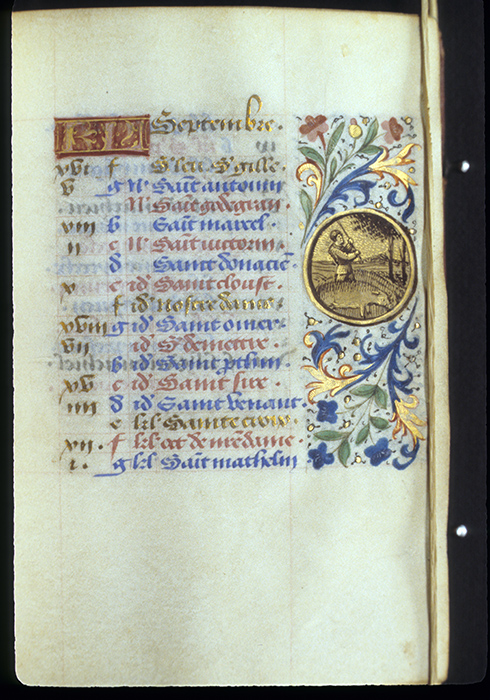 KL Septembre.
xvi f S' leu S' gille.
v g N' Saīt antonin
N' Saīt godegran.
xiii b Saīt marcel.
ii c N' Saīt victorin.
d Sainte donacie
x e id Saint cloust.
f id nostre dame
xviii g id Saint omer
vii id S' demettre
b id Saint prothin
xv c id Saint sire
iiii d id Saint venant.
e kl Saincte croix
xii. f kl oct de nre dame.
i. g kl Saīt mathelin